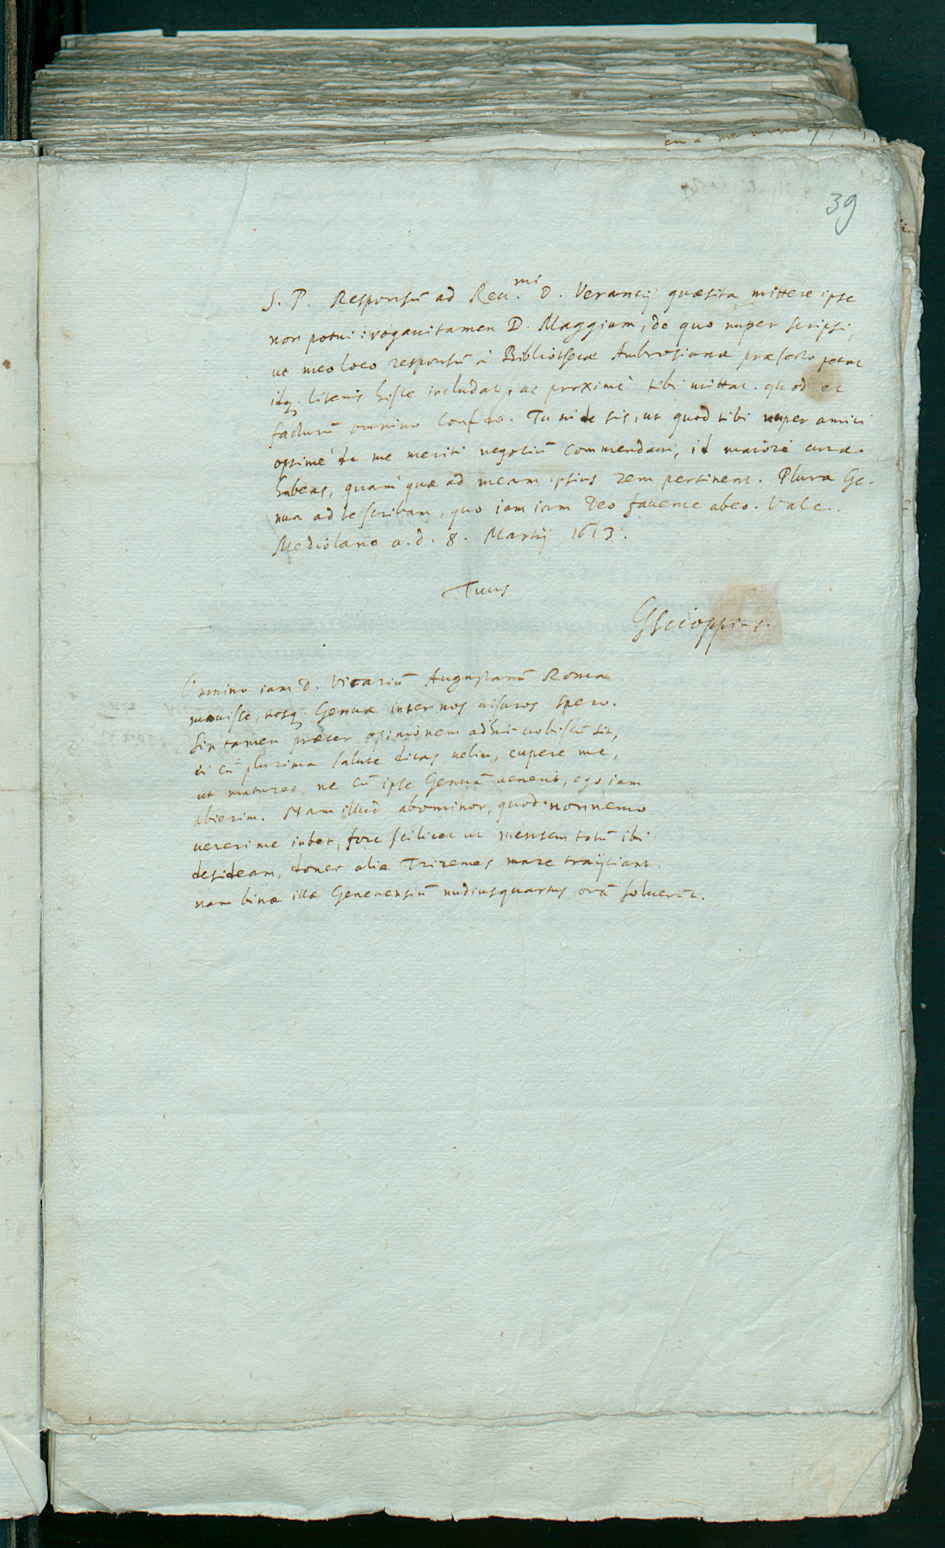 39
S. P. Responsũ ad Reu.mi D. Verantij quæsita mittere ipse
non potui: rogaui tamen D. Maggium, de quo nuper scripsi,
ut meo loco responsũ à Bibliothecæ Ambrosianæ præfecto petat
idq. literis hisce includat, ac proximè tibi mittat. quod et
facturũ omnino confido. Tu uide sis, ut quod tibi nuper amici
optimè de me meriti negotiũ commendaui, id maiori curæ
habeas, quam quæ ad meam ipsius rem pertinent. Plura Ge-
nua ad te scribam, quo iam iam Deo fauente abeo. Vale.
Mediolano a.d. 8. Martij 1613.
Tuus
GScioppius.
Omnino iam D. Vicariũ Augustanũ Roma
mouisse, nosq. Genuæ inter nos uisuros spero.
Sin tamen præter opinionem adhuc uobiscũ sit,
ei cũ plurima salute dicas uelim, cupere me,
ut maturet, ne cũ ipse Genuã uenerit, ego iam
abierim. Nam illud abominor, quod nonnemo
uereri me iubet, fore scilicet ut mensem totũ ibi
desideam, donec aliæ Triremes mare traijciant.
nam binæ illæ Genuensiũ nudiusquartus orã soluerũt.